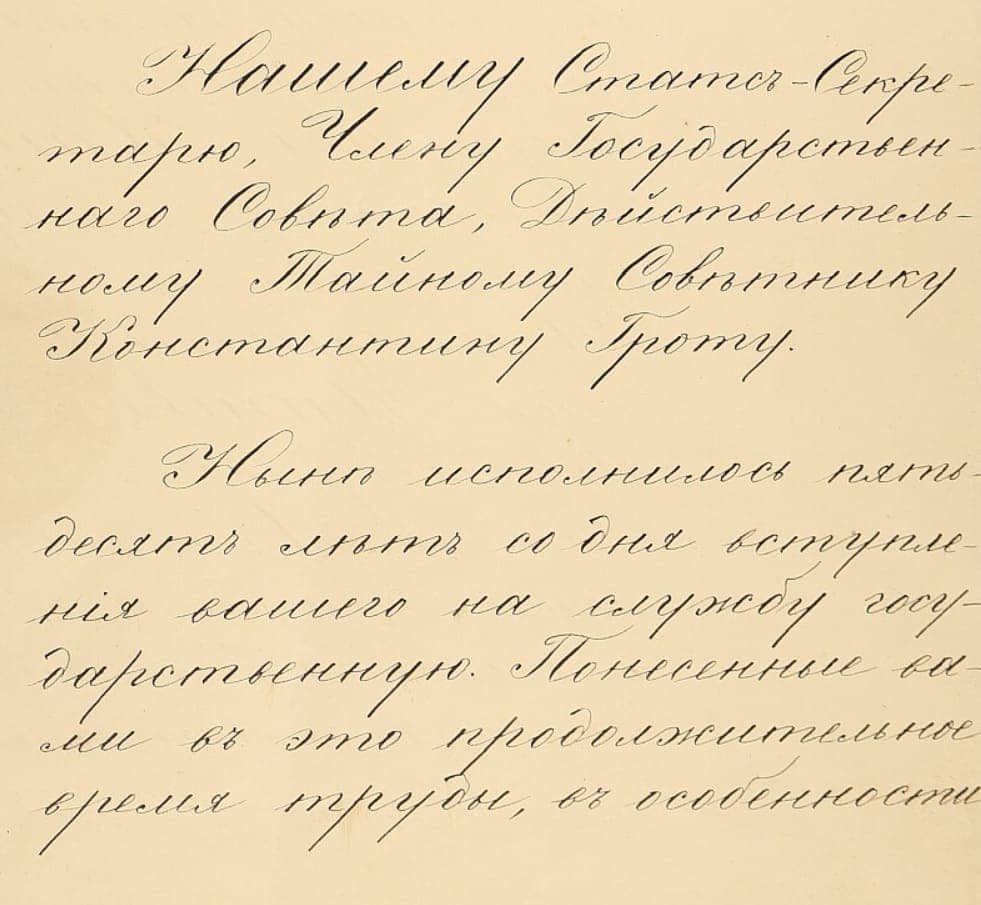 Нашему Статсъ-Секре-
тарю, Члену Государствен-
наго Совѣта, Дѣйствитель-
ному Тайному Совѣтнику
Константину Гроту.
Нынѣ исполнилось пять-
десятъ лѣтъ со дня вступле-
нія вашего на службу госу-
дарственную. Понесенные ва-
ми въ это продолжительное
время труды, въ особенности